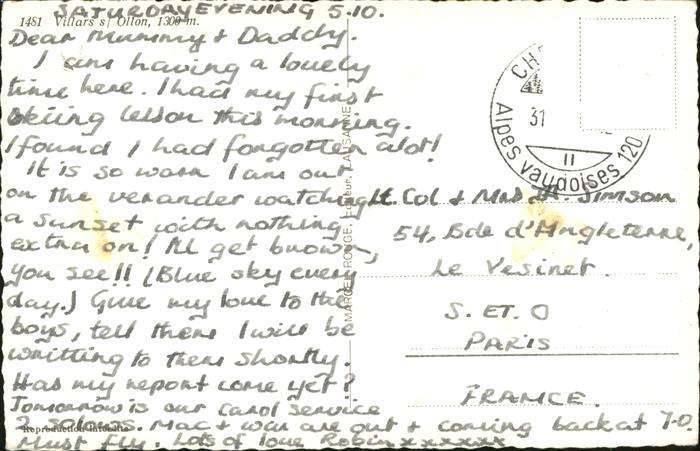 SATURDAY EVENING 5.10.
1481 Villars s/ Ollon, 1300 m.
Dear Mummy & Daddy.
I am having a lovely
time here. I had my first
skiing lesson this morning.
I found I had forgotten alot!
It is so warm I am out
on the verander watching
a sunset with nothing
extra on! I'll get brown,
you see!! (Blue sky every
day.) Give my love to the
boys, tell them I will be
writting to them shortly.
Has my report come yet?
Tomorrow is our Carol service
Mac + war are out & coming back at 7-0.
Must fly. Lots of love Robin xxxxxxx
Reproduction interdite
LAUSANNE
CH
31
II
Alpes vaudoises 120
Lt. Col & Mrs. Simson
54, Bde d'Angleterre,
Le Vesinet.
S. ET. O
PARIS
FRANCE.